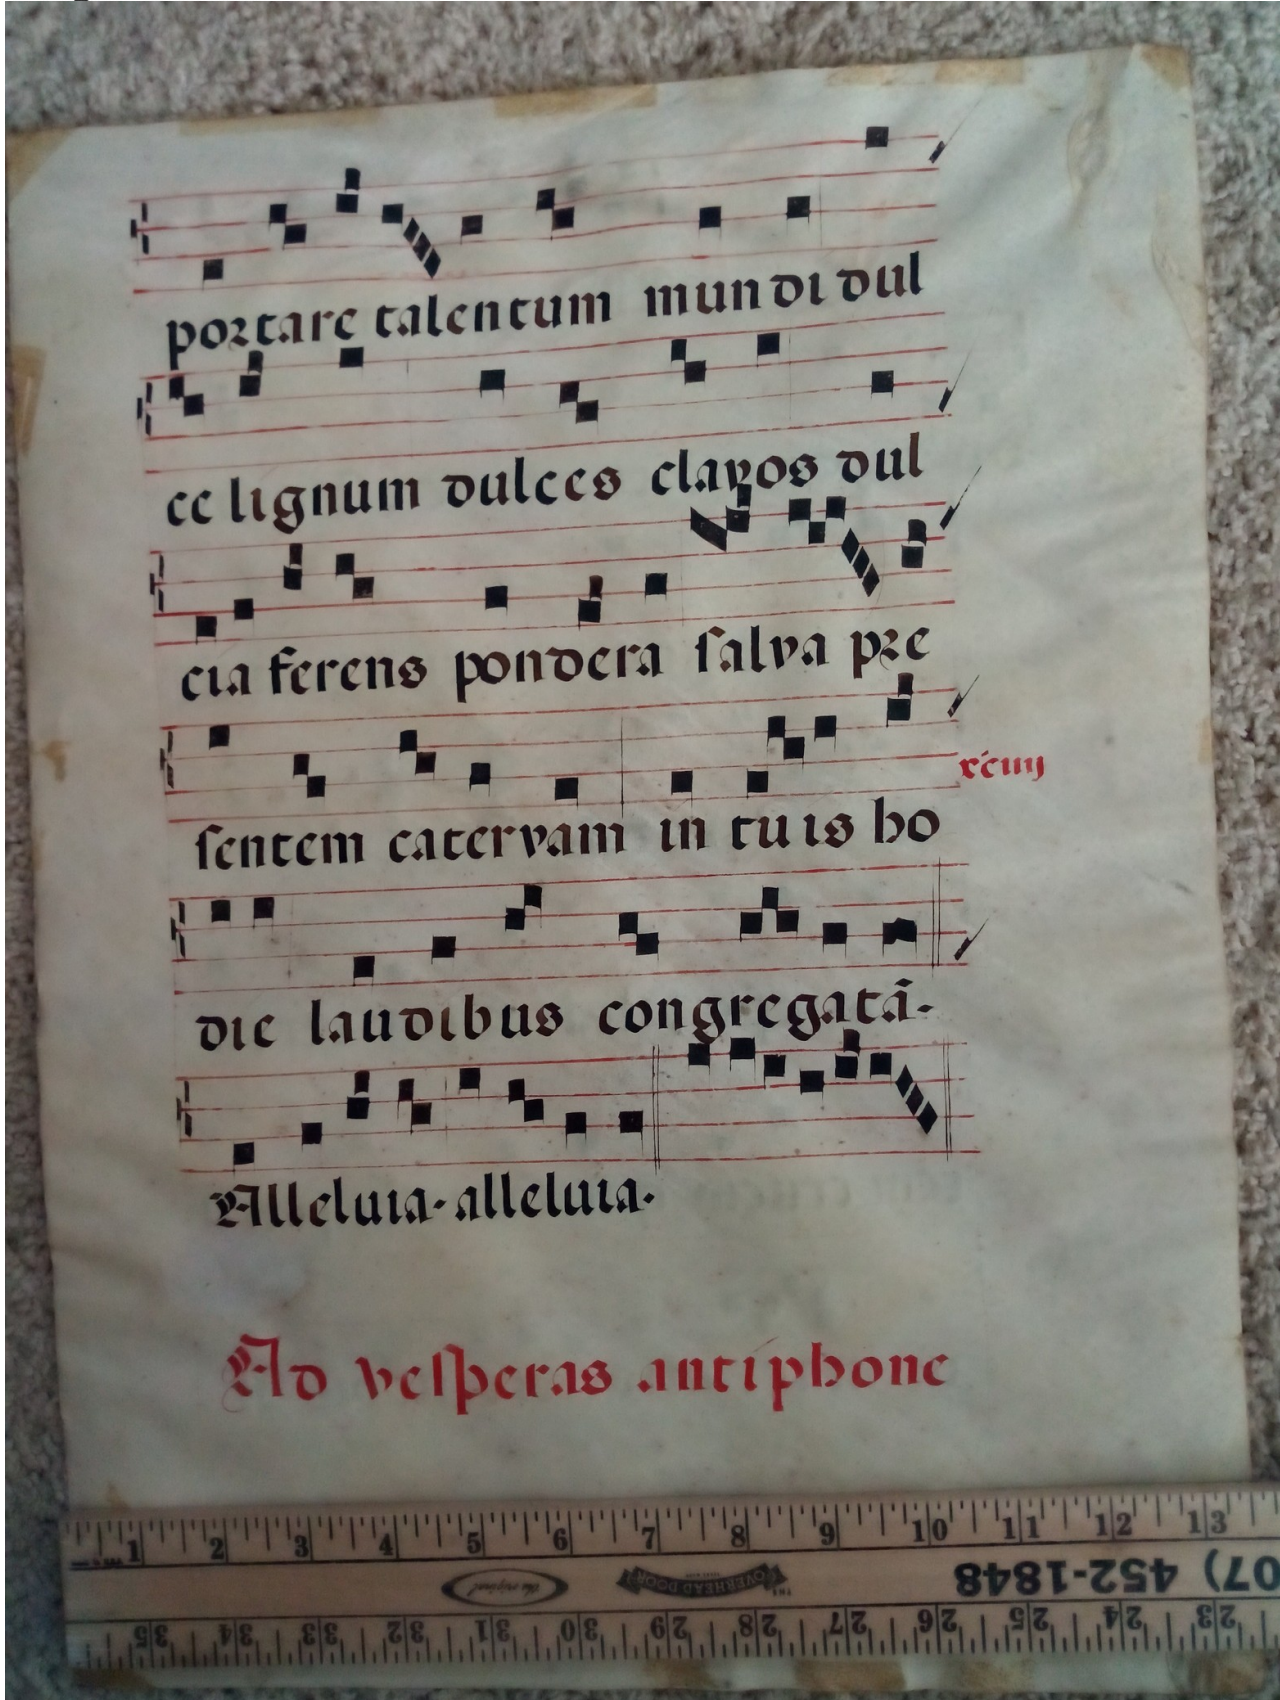 portare talentum mun di dul
ce lignum dulces clavos dul
cia ferens pondera salva pre
sentem catervam in tu is ho
die laudibus congregatā.
Alleluia. alleluia.
Ad vesperas antiphone
1 2 3 4 5 6 7 8 9 10 11 12 13
the original OVERHEAD DOOR THE 07) 452-1848
35 34 33 32 31 30 29 28 27 26 25 24 23